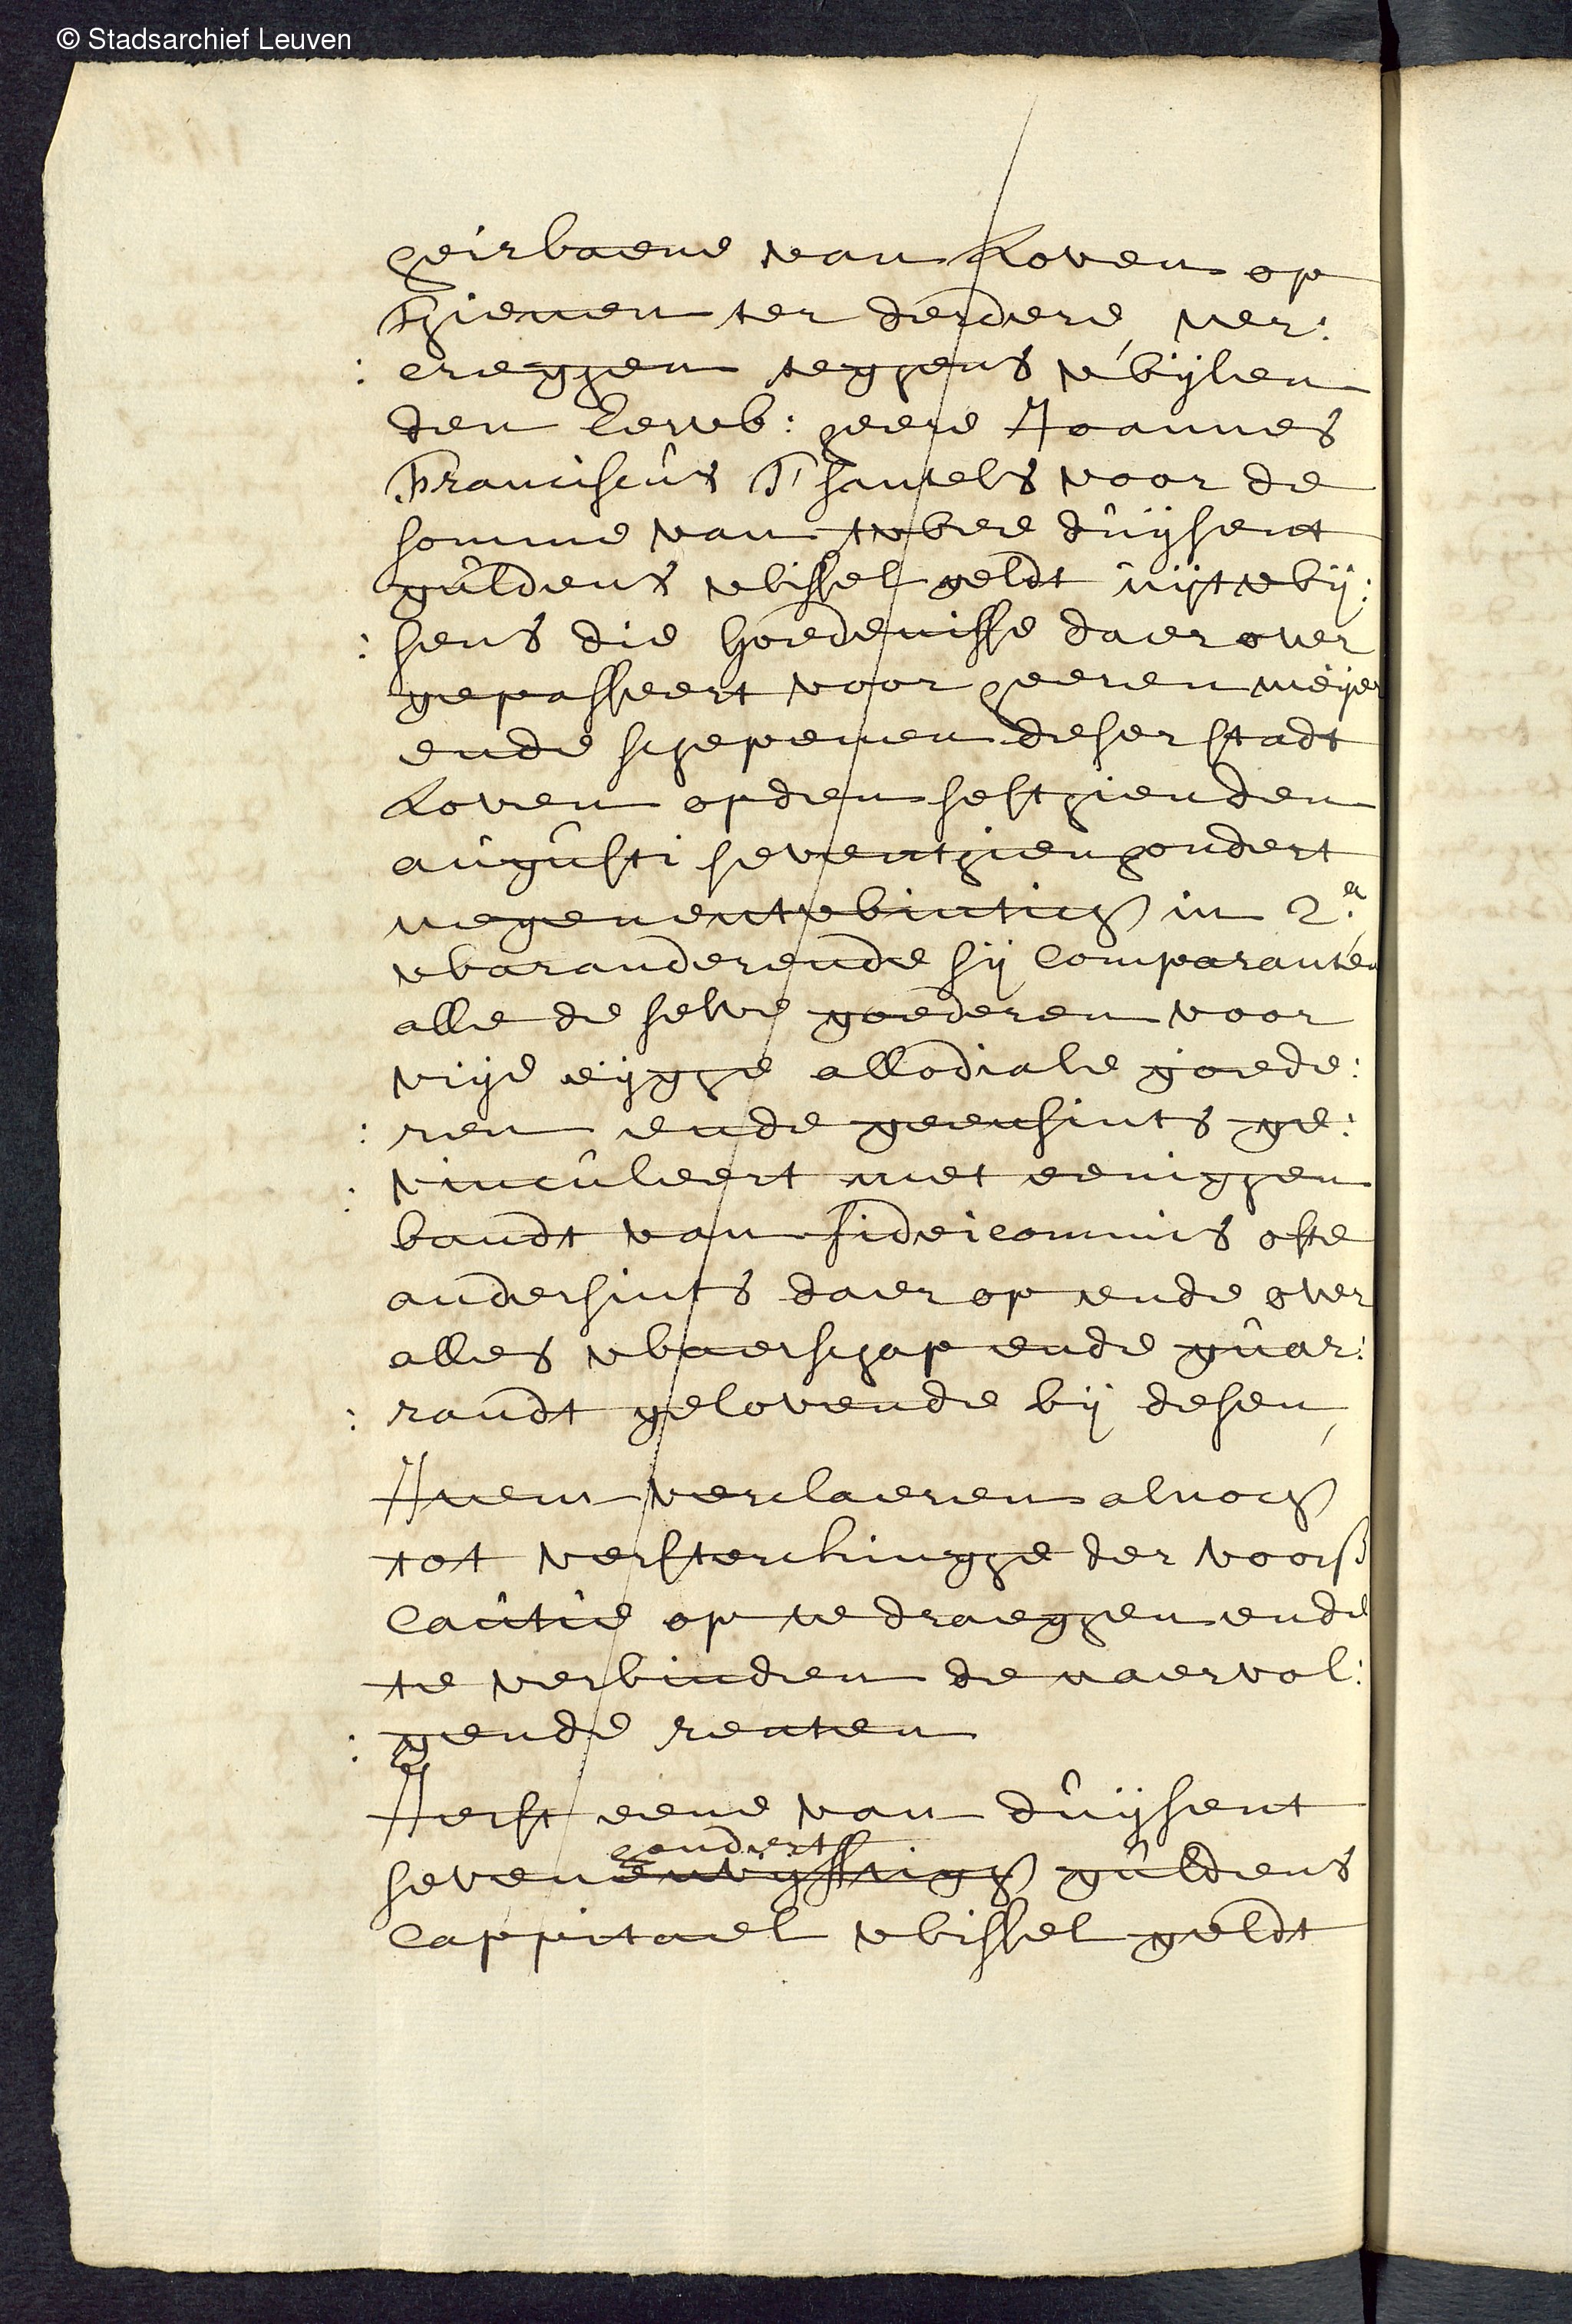 © Stadsarchief Leuven
heirbaene van Loven op
Thienen ter derdere, ver:
: creghen teghens wijlen
den Eerw: heere Joannes
Franciscus T'Santels voor de
somme van twee duijsent
guldens wissel geldt uijtwij:
: sens die Goedenisse daer over
gepasseert voor heeren meijer
ende schepenen deser stadt
Loven op den sesthienden
augusti seventhien hondert
negenentwintich in 2.a
waranderende sij Comparanten
alle de selve goederen voor
vrije eijghe allodiale goede:
: ren ende geensints ge:
: vinculeert met eenighen
bandt van fideicommis ofte
andersints daer op ende over
alles waerschap ende guar:
: randt gelovende bij desen,
Item verclaeren alnoch
tot versterckinghe der voors
Cautie op te draeghen ende
te verbinden de naervol:
: gende renten
Ierst eene van duijsent
hondert
seven envijfftigh guldens
Cappitael wissel geldt